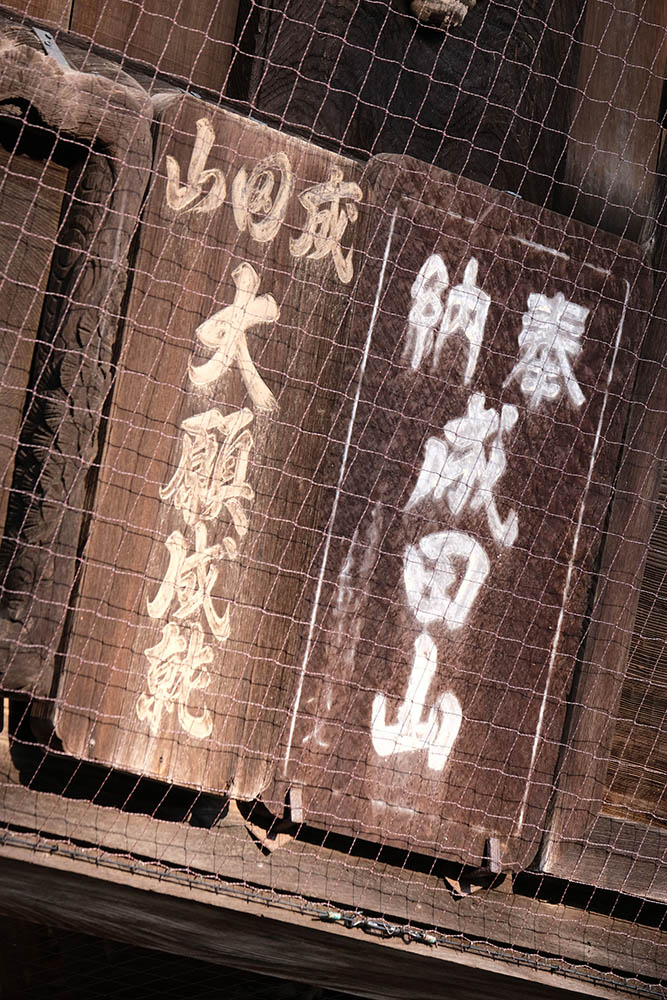 奉納
成田山
成田山
大願成就